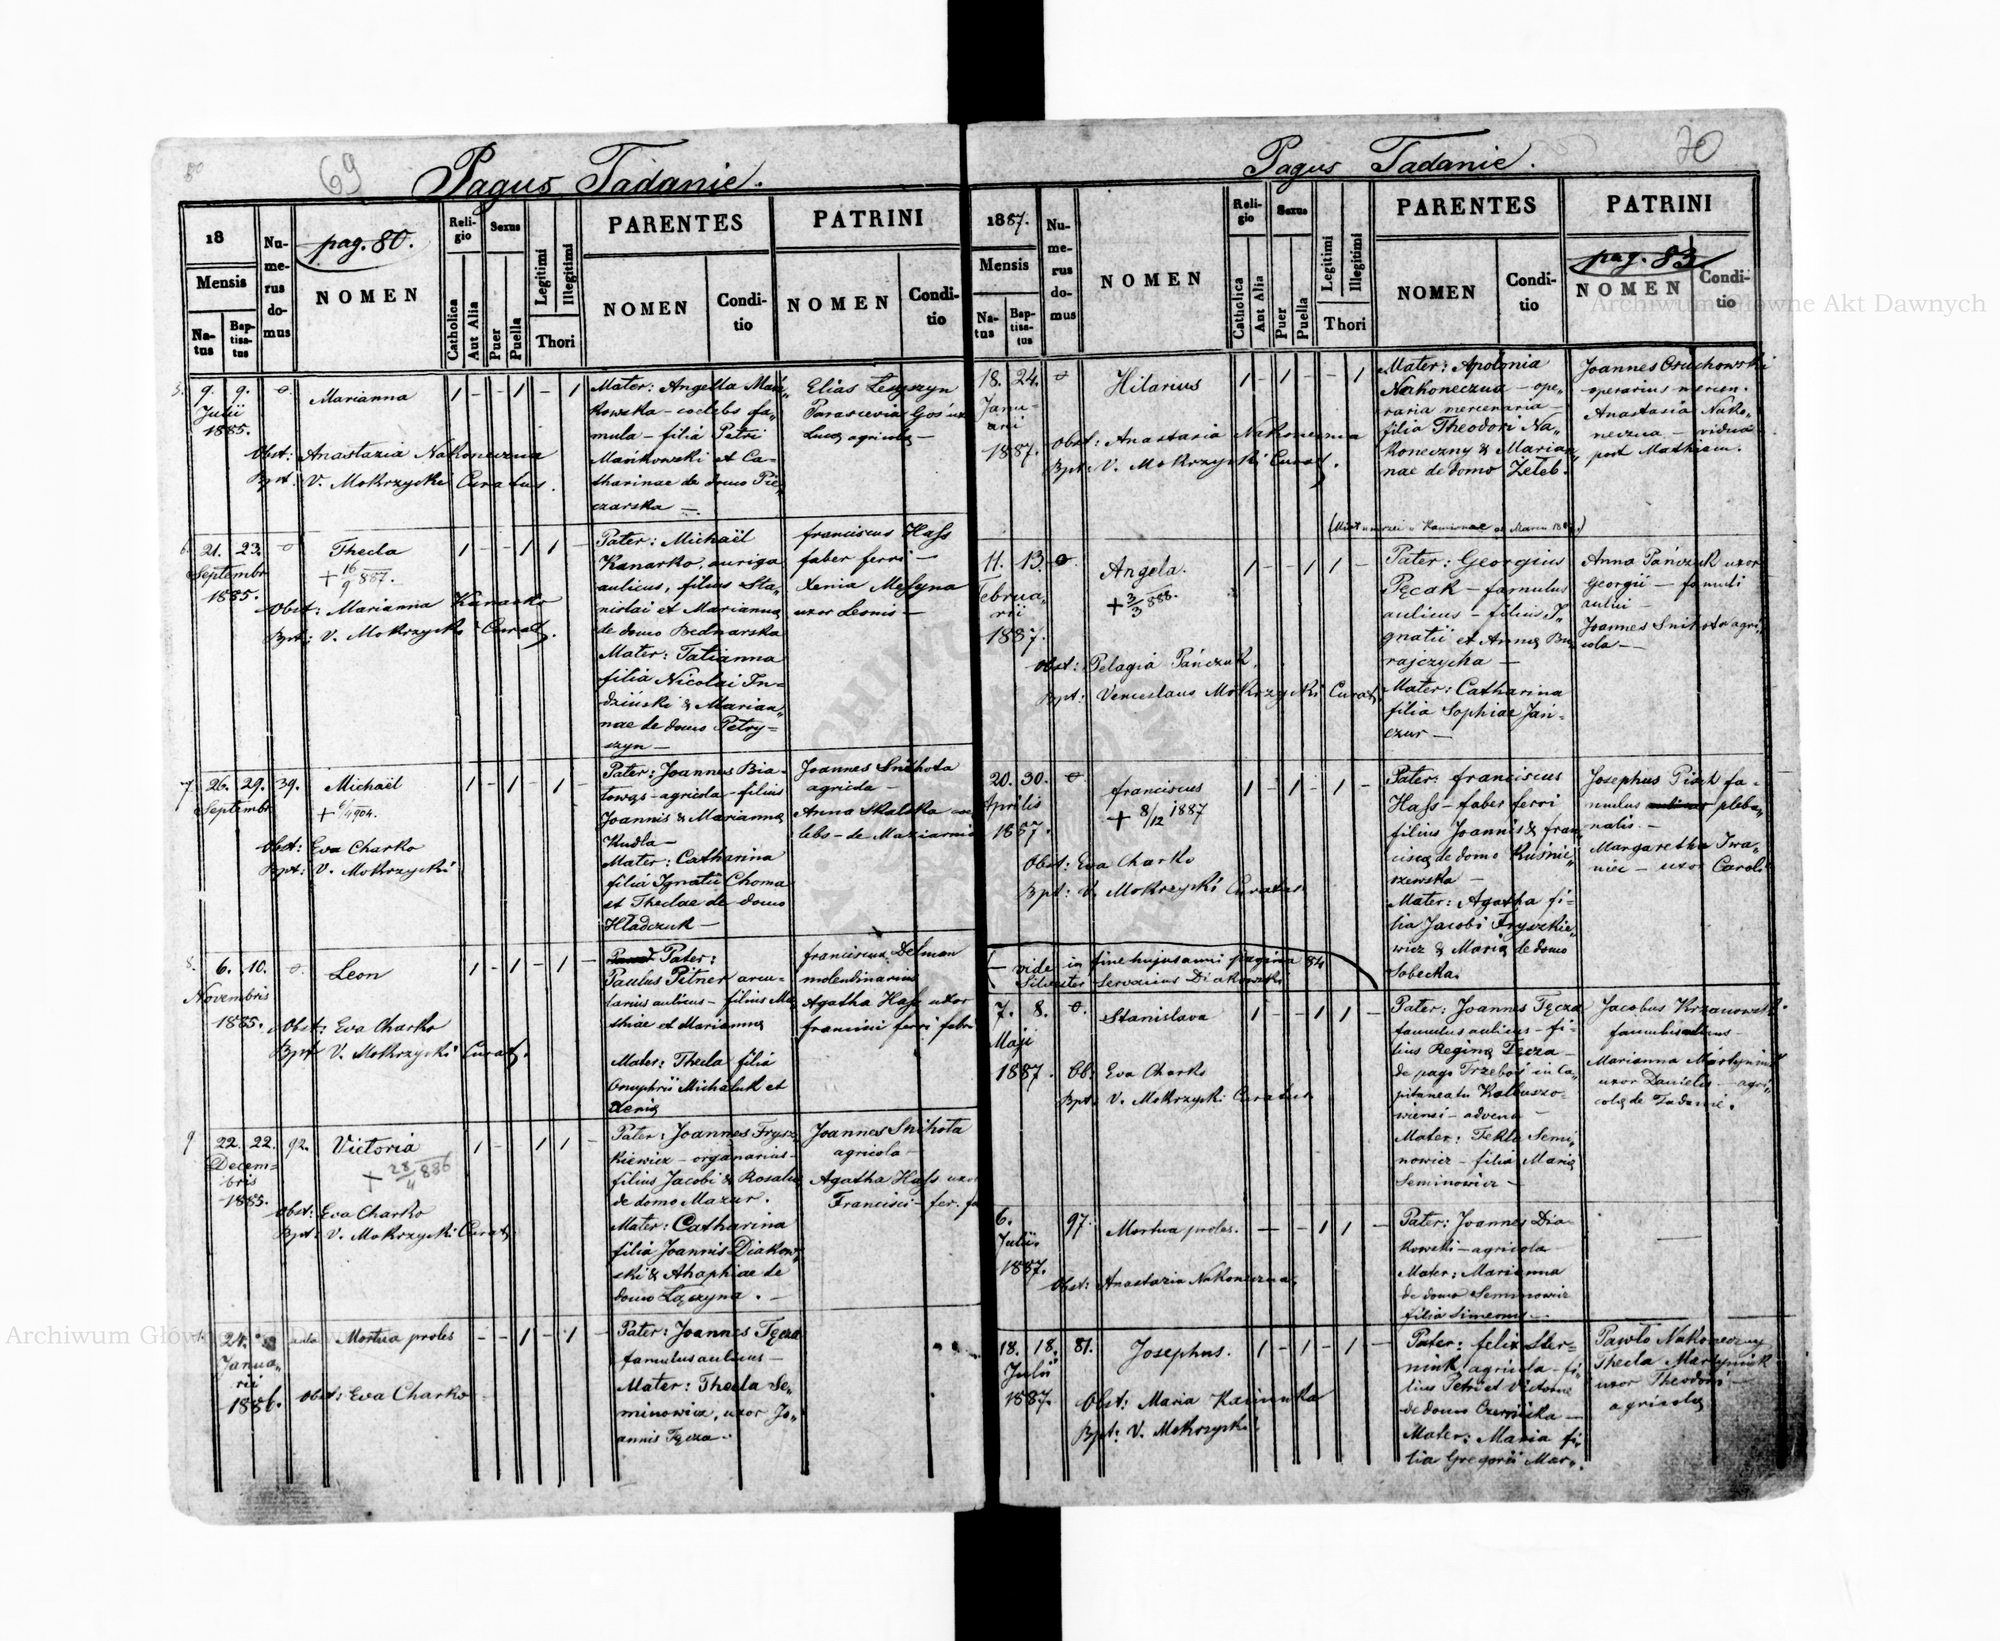 80
69
Pagus Tadanie.
18
Mensis
Na-
tus
Bap-
tisa-
tus
Nu-
me-
rus
do-
mus
pag. 80.
NOMEN
Reli-
gio
Catholica
Aut Alia
Sexus
Puer
Puella
Legitimi
Illegitimi
Thori
PARENTES
NOMEN
Condi-
tio
PATRINI
NOMEN
Condi-
tio
5. 9. 9. Marianna 1 - - 1 - 1
Julii
1885.
Obst: Anastazia Nakoneczna
Bpt: V. Mokrzycki Curatus.
Mater: Angella Mań-
kowska - coelebs fa-
mula - filia Petri
Mańkowski et Ca-
tharinae de domo Pie-
czarska -
Elias Leszszyn
Parascevia Goś uxor
Lucae agricolae -
6. 21. 23. Thecla 1 - - 1 1 -
Septembr
1885.
+ 16/9 887.
Obst: Marianna Kanarko
Bpt: V. Mokrzycki Curat.
Pater: Michaël
Kanarko, auriga
aulicus, filius Sta-
nislai et Mariannae
de domo Bednarska
Mater: Tatianna
filia Nicolai In-
dziński & Marian-
nae de domo Petry-
szyn -
Franciscus Hass
faber ferri -
Xenia Mesyna
uxor Leonis -
7. 26. 29. 39. Michaël 1 - 1 - 1 -
Septembr
Obst: Eva Charko
Bpt: V. Mokrzycki
Pater: Joannes Bia-
towąs - agricola - filius
Joannis & Mariannae
Kudła -
Mater: Catharina
filia Ignatii Choma
et Theclae de domo
Hładczuk -
Joannes Snihota
agricola -
Anna Skalska coe
lebs - de Maziarnia
8. 6. 10. Leon 1 - 1 - 1 -
Novembris
1885.
Obst: Eva Charko
Bpt V. Mokrzycki Curat.
Pater:
Paulus Pitner arcu-
larius aulicus - filius Ma-
thiae et Mariannae
Mater: Thecla filia
Onuphrii Michaluk et
Xeniae
Franciscus Delman
molendinarius
Agatha Hass uxor
Francisci ferri fabri
9. 22. 22. 92. Victoria 1 - - 1 1 -
Decem-
bris
1885.
+ 28/4 886
Obst: Eva Charko
Bpt: V. Mokrzycki Curat.
Pater: Joannes Frysz-
kiewicz - organarius -
filius Jacobi & Rosaliae
de domo Mazur.
Mater: Catharina
filia Joannis Diakow-
ski & Ahaphiae de
domo Łączyna. -
Joannes Snihota
agricola -
Agatha Hass uxor
Francisci - fer. fa
24. Mortua proles - - 1 - 1 -
Janua-
rii
1886.
Obst: Eva Charko
Pater: Joannes Tęcza
famulus aulicus -
Mater: Thecla Se-
minowicz, uxor Jo-
annis Tęcza.
70
Pagus Tadanie.
1887.
Mensis
Na-
tus
Bap-
tisa-
tus
Nu-
me-
rus
do-
mus
NOMEN
Reli-
gio
Catholica
Aut Alia
Sexus
Puer
Puella
Legitimi
Illegitimi
Thori
PARENTES
NOMEN
Condi-
tio
PATRINI
pag. 83
NOMEN
Condi-
tio
18. 24. Hilarius 1 - 1 - - 1
Janu-
arii
1887.
Obst: Anastasia Nakoneczna
Bpt: V. Mokrzycki Curat.
Mater: Apolonia
Nakoneczna - ope-
raria mercenaria -
filia Theodori Na-
koneczny & Marian-
nae de domo Zeleb.
Joannes Oruchowski
operarius mercen.
Anastasia Nako-
neczna - vidua
post Mathiam.
11. 13. Angela. 1 - - 1 1 -
Februa-
rii
1887.
+ 3/3 888.
Obst: Pelagia Pańczuk.
Bpt: Venceslaus Mokrzycki Curat.
Pater: Georgius
Pęcak - famulus
aulicus - filius I-
gnatii et Annae Bu-
rajczycha -
Mater: Catharina
filia Sophiae Jań-
czur -
Anna Pańczuk uxor
Georgii - famuli
aulici -
Joannes Snihota agri-
cola -
20. 30. Franciscus 1 - 1 - 1 -
Aprilis
1887.
+ 8/12 1887
Obst: Eva Charko
Bpt: V. Mokrzycki Curatus
Pater: Franciscus
Hass - faber ferri
filius Joannis & Fran-
ciscae de domo Kuśnie-
rzewska -
Mater: Agatha fi-
lia Jacobi Fryszkie-
wicz & Mariae de domo
Sobecka.
Josephus Pisch fa-
mulus pleba-
nalis. -
Margaretha Iwa-
niec - uxor Caroli
- vide in fine hujus anni pagina 84
Silvester Servatius Diakowski
7. 8. Stanislava 1 - - 1 1 -
Maji
1887.
Ob: Eva Charko
Bpt: V. Mokrzycki Curatus
Pater: Joannes Tęcza
famulus aulicus - fi-
lius Reginae Tęcza -
de pago Trzeboś in Ca-
pitaneatu Kolbuszo-
wiensi - advena -
Mater: Tekla Semi-
nowicz - filia Mariae
Seminowicz -
Jacobus Krzanowski
famulus aulicus -
Marianna Martyniuk
uxor Danielis - agri-
colae de Tadanie.
6. 97. Mortua proles. - - 1 1 -
Julii.
1887.
Obst: Anastazia Nakoneczna.
Pater: Joannes Dia-
kowski - agricola
Mater: Marianna
de domo Seminowicz
filia Simeonis -
18. 18. 81. Josephus. 1 - 1 - 1 -
Julii
1887.
Obst: Maria Kaniuka
Bpt: V. Mokrzycki
Pater: Felix Ster-
niuk agricola - fi-
lius Petri et Victoriae
de domo Czernicka -
Mater: Maria fi-
lia Gregorii Mar-
Pawło Nakoneczny
Thecla Martyniuk
uxor Theodori -
agricolae
Archiwum Główne Akt Dawnych